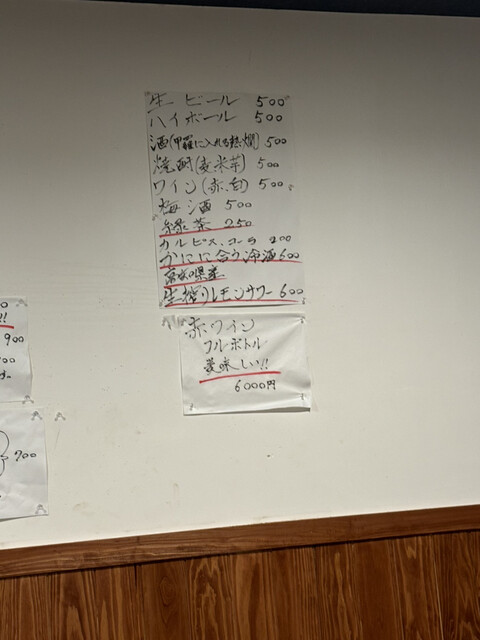 生ビール 500
ハイボール 500
酒(甲羅に入れる熱燗) 500
焼酎(麦米芋) 500
ワイン(赤、白) 500
梅酒 500
緑茶 250
カルピス、コーラ 200
かにに合う冷酒 600
県産
生搾りレモンサワー 600
赤ワイン
フルボトル
美味しい!!
6000円
!!
900
00
700